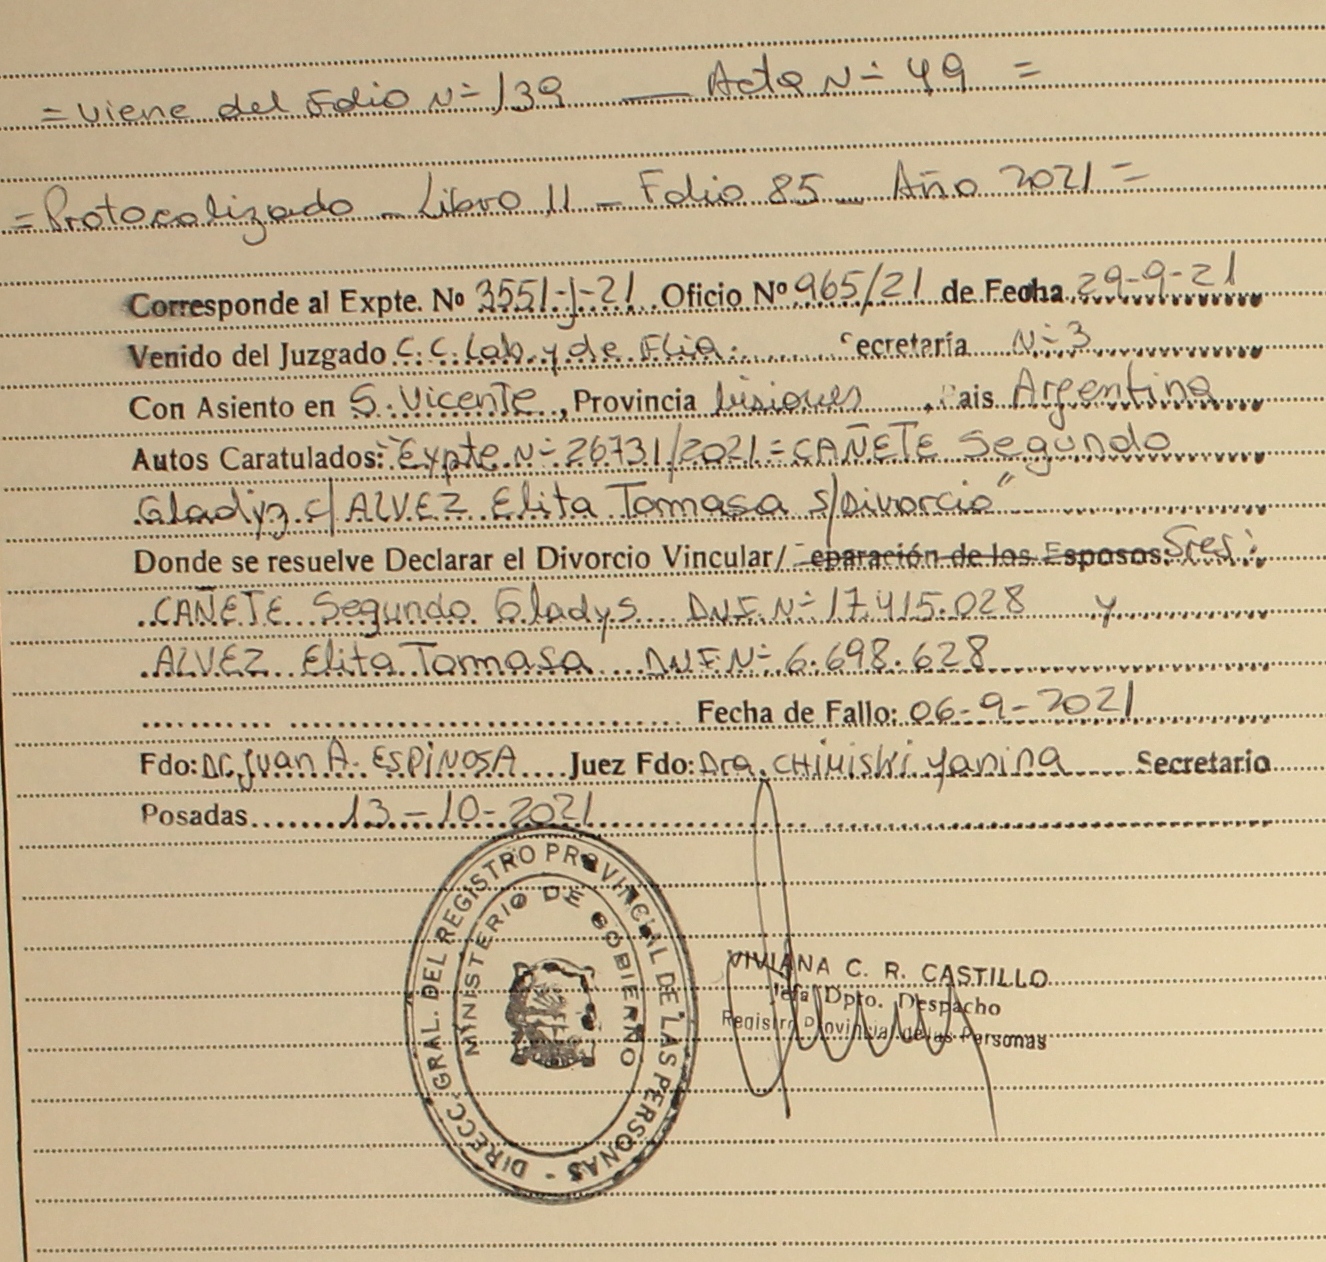 = Viene del Folio Nº 139 — Acta Nº 49 =
= Protocolizado - Libro 11 - Folio 85 - Año 2021 =
Corresponde al Expte. Nº 3551-J-21 Oficio Nº 965/21 de Fecha 29-9-21
Venido del Juzgado C.C. Lab. y de Flia. Secretaría Nº 3
Con Asiento en S. Vicente, Provincia Misiones, Pais Argentina
Autos Caratulados: "Expte. Nº 26731/2021 = CAÑETE Segundo
Gladyz c/ ALVEZ Elita Tomasa S/Divorcio"
Donde se resuelve Declarar el Divorcio Vincular/ Separación de los Esposos: Sres:
CAÑETE Segundo Gladys DNI Nº 17.415.028 y
ALVEZ Elita Tomasa DNI Nº 6.698.628
Fecha de Fallo: 06-9-2021
Fdo: Dr. Juan A. ESPINOSA Juez Fdo: Dra. CHIMISKI Yanina Secretario
Posadas 13-10-2021
DIRECC. GRAL. DEL REGISTRO PROVINCIAL DE LAS PERSONAS -
MINISTERIO DE GOBIERNO
VIVIANA C. R. CASTILLO
Jefa Dpto. Despacho
Registro Provincial de las Personas